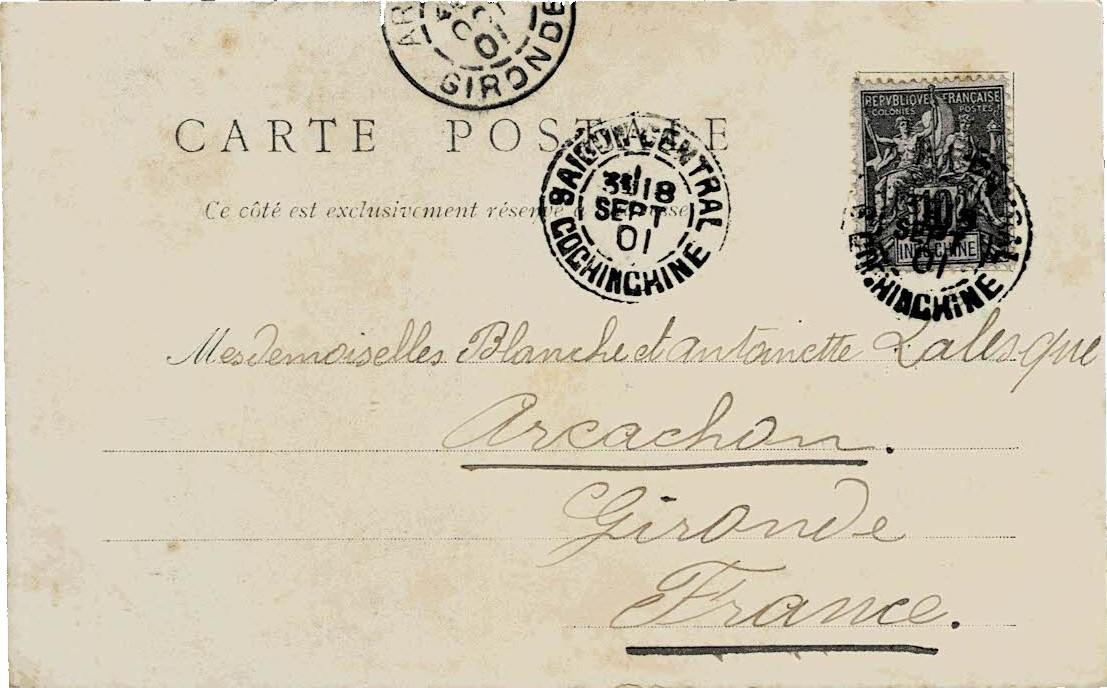 GIRONDE
01
REPVBLIQVE FRANÇAISE
COLONIES POSTES
10
INDO-CHINE
CARTE POSTALE
SAIGON CENTRAL
18
SEPT
01
COCHINCHINE
SEPT
01
Ce côté est exclusivement réservé à l'adresse
Mesdemoiselles Blanche et Antoinette Lalesque
Arcachon.
Gironde
France.